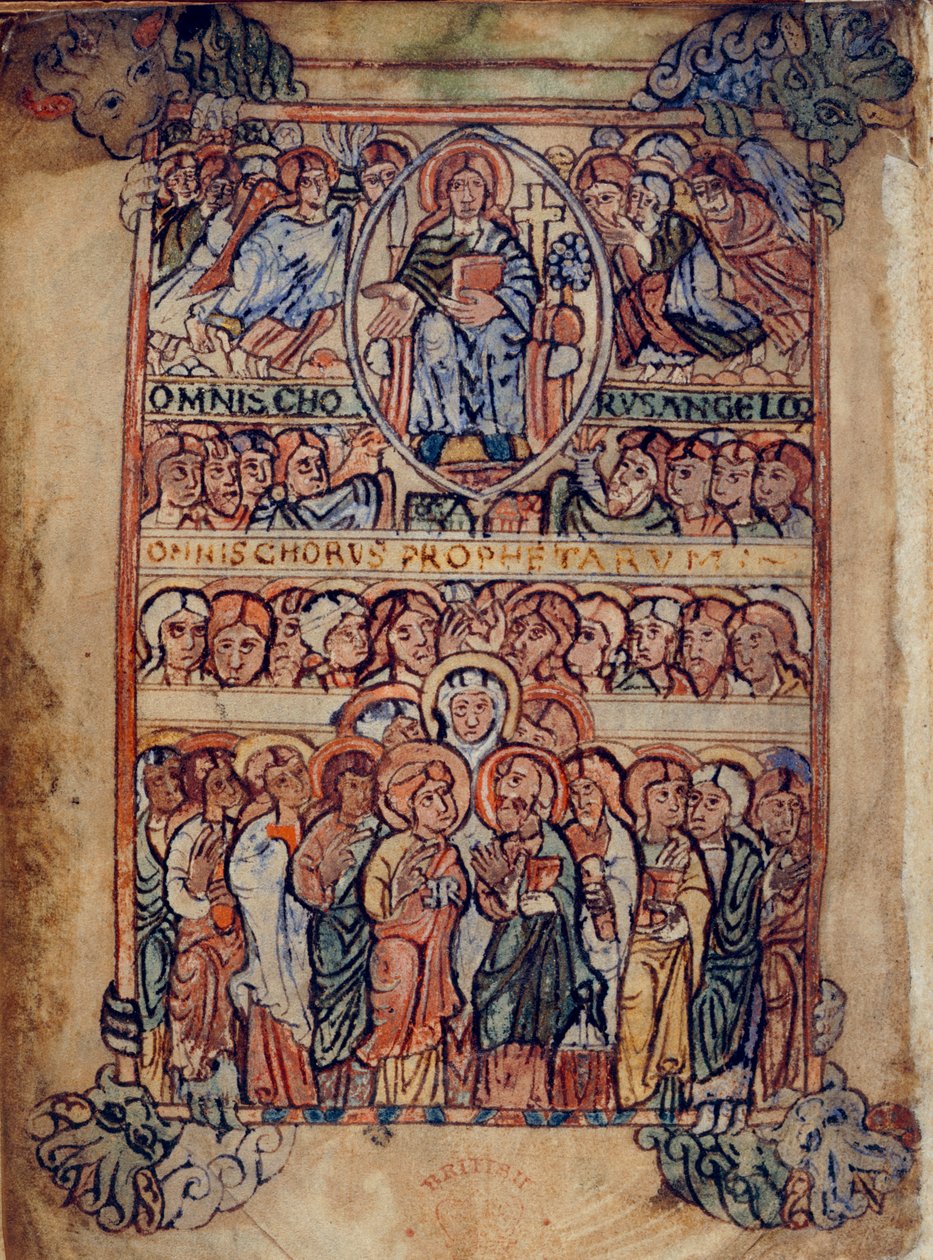 OMNIS.CHO RVSANGELOꝜ
OMNISCHORVS PROPHETARVM
BRITISH